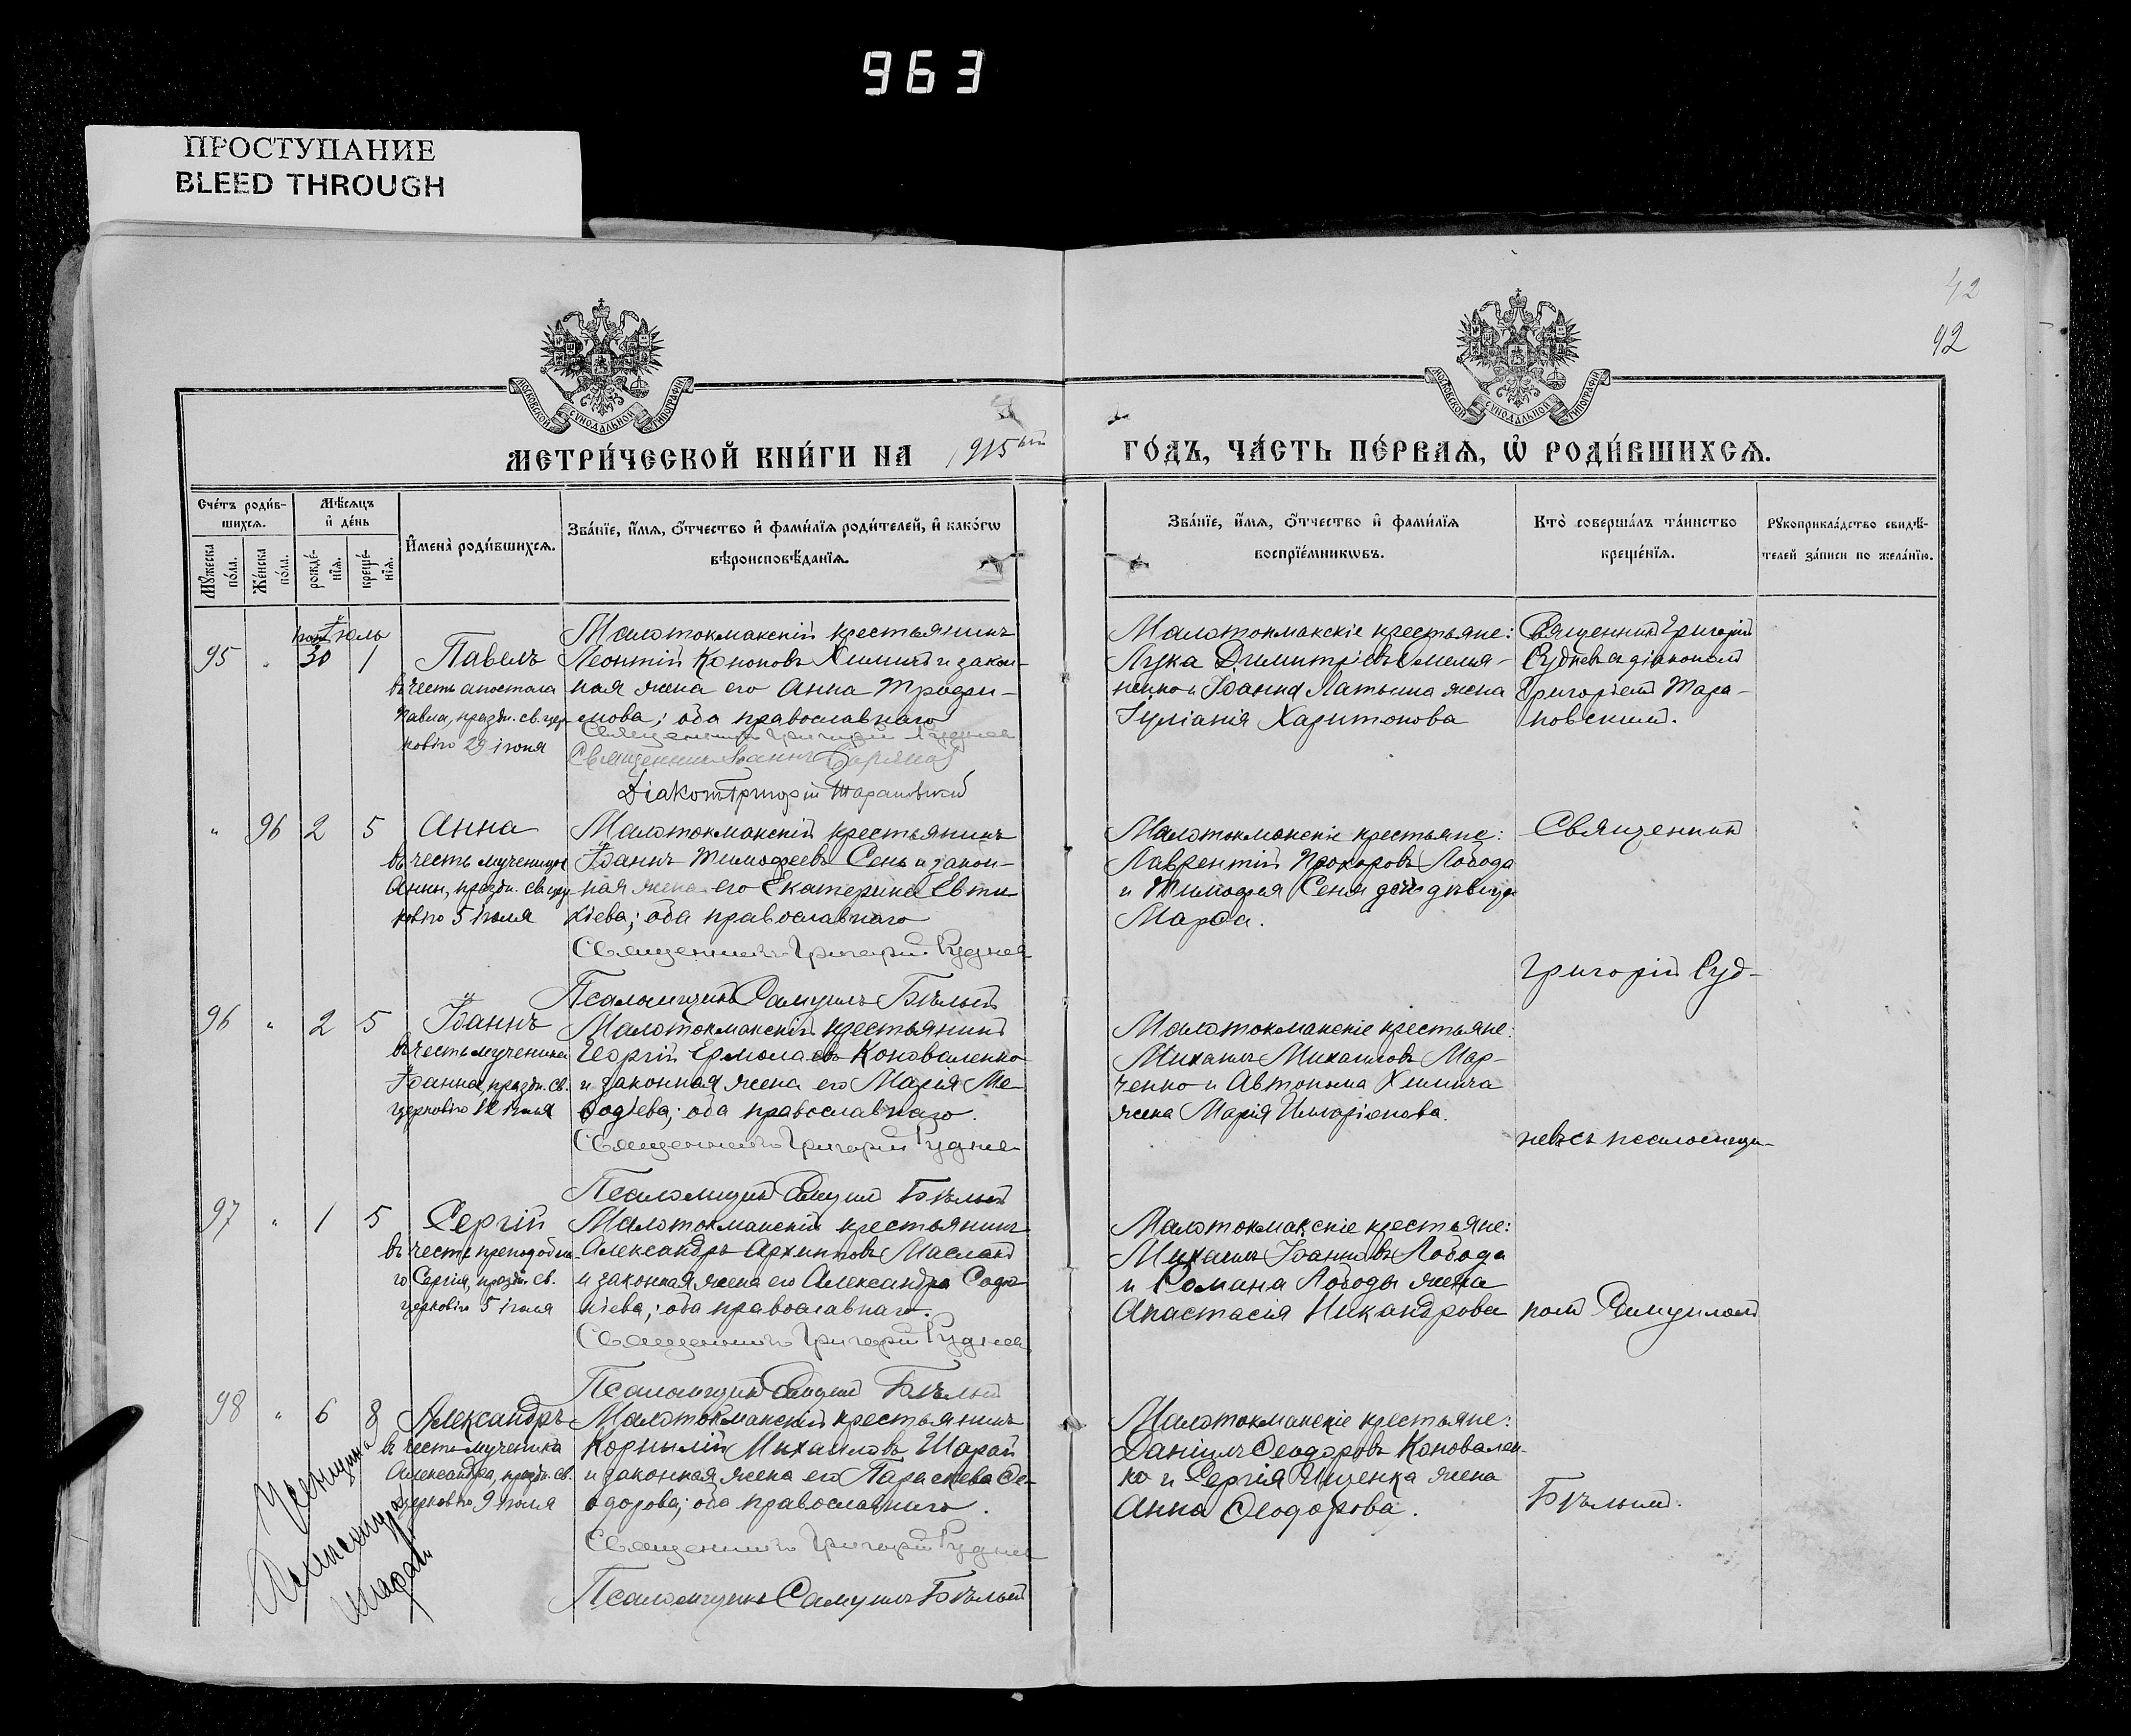 963
ПРОСТУПАНИЕ
BLEED THROUGH
42
42
МОСКОВСКОЙ СУНОДАЛЬНОЙ ТИПОГРАФІИ
МОСКОВСКОЙ СУНОДАЛЬНОЙ ТИПОГРАФІИ
МЕТРИ́ЧЕСКОЙ КНИ́ГИ НА 1915ый ГО́ДЪ, ЧА́СТЬ ПЕ́РВАѦ, Ѡ҆ РОДИ́ВШИХСѦ.
Сче́тъ роди́вшихсѧ.
Мꙋ́жеска по́ла.
Же́нска по́ла.
Мѣ́сѧцъ и҆ де́нь
рожде́нїѧ.
креще́нїѧ.
И҆мена̀ роди́вшихсѧ.
Зва́нїе, и҆́мѧ, ѻ҆́тчество и҆ фами́лїѧ роди́телей, и҆ како́гѡ
вѣроисповѣ́данїѧ.
Зва́нїе, и҆́мѧ, ѻ҆́тчество и҆ фами́лїѧ
воспрїе́мникѡвъ.
Кто̀ соверша́лъ та́инство
креще́нїѧ.
Рꙋкоприкла́дство свидѣ́-
телей за́писи по жела́нїю.
Іюль
95 " 30 1 Павелъ
въ честь апостола
Павла, праздн. св. цер-
ковію 29 іюня
Малотокмакскій крестьянинъ
Леонтій Кононовъ Химичъ и закон-
ная жена его Анна Трофи-
мова; оба православнаго
Священникъ Григорій Руднев
Священникъ Іоаннъ
Діаконъ Григорій Тарановскій
Малотокмакскіе крестьяне:
Лука Димитріевъ Омелья-
ненко и Іоанна Латыша жена
Іуліанія Харитонова
Священникъ Григорій
Рудневъ съ діакономъ
Григоріемъ Тара-
новскимъ.
" 96 2 5 Анна
въ честь мученицы
Анны, праздн. св. цер-
ковію 5 іюля
Малотокмакскій крестьянинъ
Іоаннъ Тимофеевъ Сень и закон-
ная жена его Екатерина Евти-
хіева; оба православнаго
Священникъ Григорій Руднев
Псаломщикъ Самуилъ Бѣлый
Малотокмакскіе крестьяне:
Лаврентій Прохоровъ Лобода
и Тимофея Сеня дочь дѣвица
Марфа.
Священникъ
Григорій Руд-
96 " 2 5 Іоаннъ
въ честь мученика
Іоанна, праздн. св.
церковію 12 іюля
Малотокмакскій крестьянинъ
Георгій Ермолаевъ Коноваленко
и законная жена его Марія Ме-
ѳодіева; оба православнаго.
Священникъ Григорій Руднев
Псаломщикъ Самуилъ Бѣлый
Малотокмакскіе крестьяне:
Михаилъ Михаиловъ Мар-
ченко и Автонома Химича
жена Марія Иларіонова.
невъ съ псаломщи-
97 " 1 5 Сергій
въ честь преподобна-
го Сергія, праздн. св.
церковію 5 іюля
Малотокмакскій крестьянинъ
Александръ Архиповъ
и законная жена его Александра Софро-
ніева; оба православнаго.
Священникъ Григорій Руднев
Псаломщикъ Самуилъ Бѣлый
Малотокмакскіе крестьяне:
Михаилъ Іоанновъ Лобода
и Романа Лободы жена
Анастасія Никандрова
комъ Самуиломъ
98 " 6 8 Александръ
въ честь мученика
Александра, праздн. св.
церковію 9 іюля
Малотокмакскій крестьянинъ
Корнилій Михаиловъ Шарай
и законная жена его Параскева Ѳе-
одорова; оба православнаго.
Священникъ Григорій Руднев
Псаломщикъ Самуилъ Бѣлый
Малотокмакскіе крестьяне:
Даніилъ Ѳеодоровъ Коновален-
ко и Сергія Ищенка жена
Анна Ѳеодорова.
Бѣлымъ.